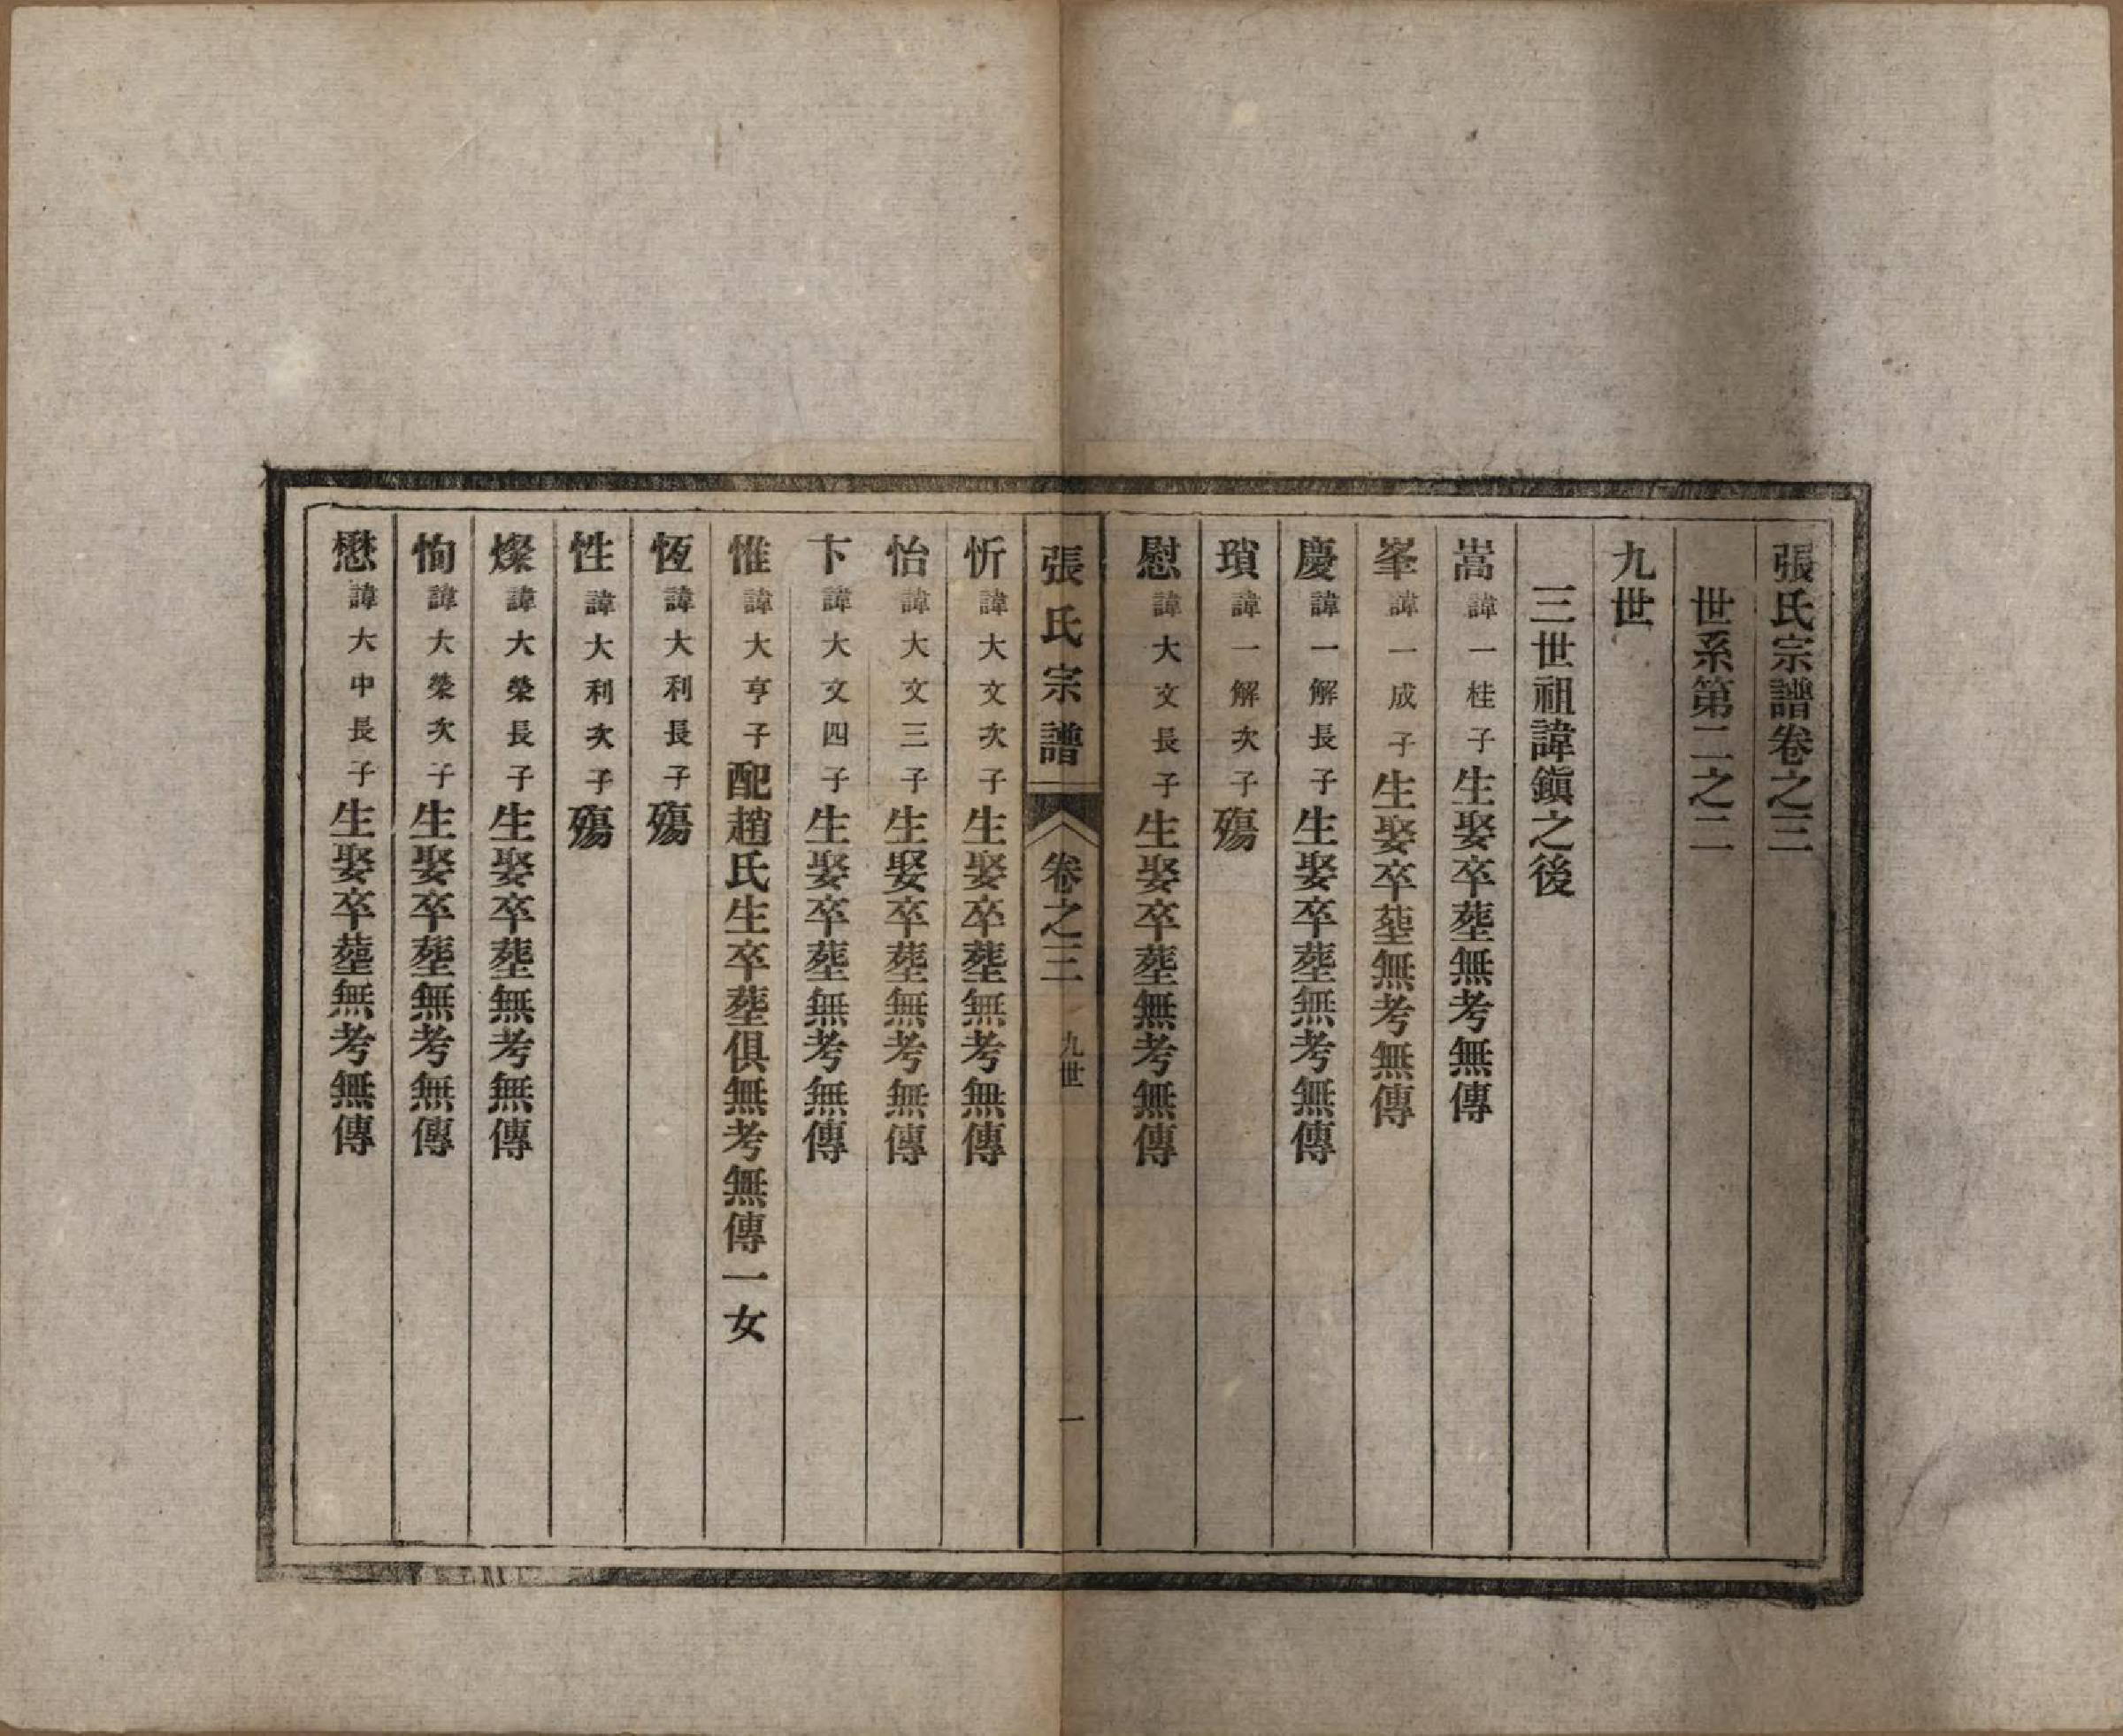 張氏宗譜卷之三
世系第二之二
九世
三世祖諱鎭之後
嵩諱一桂子生娶卒塟無考無傳
峯諱一成子生娶卒塟無考無傳
慶諱一解長子生娶卒塟無考無傳
瑣諱一解次子殤
慰諱大文長子生娶卒塟無考無傳
張氏宗譜 卷之三 九世 一
忻諱大文次子生娶卒塟無考無傳
怡諱大文三子生娶卒塟無考無傳
卞諱大文四子生娶卒塟無考無傳
惟諱大亨子配趙氏生卒塟俱無考無傳一女
恆諱大利長子殤
性諱大利次子殤
燦諱大榮長子生娶卒塟無考無傳
恂諱大榮次子生娶卒塟無考無傳
懋諱大中長子生娶卒塟無考無傳